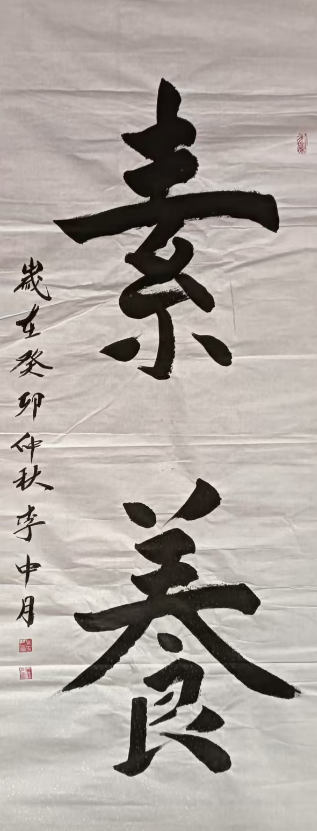 素養
歲在癸卯仲秋李中月